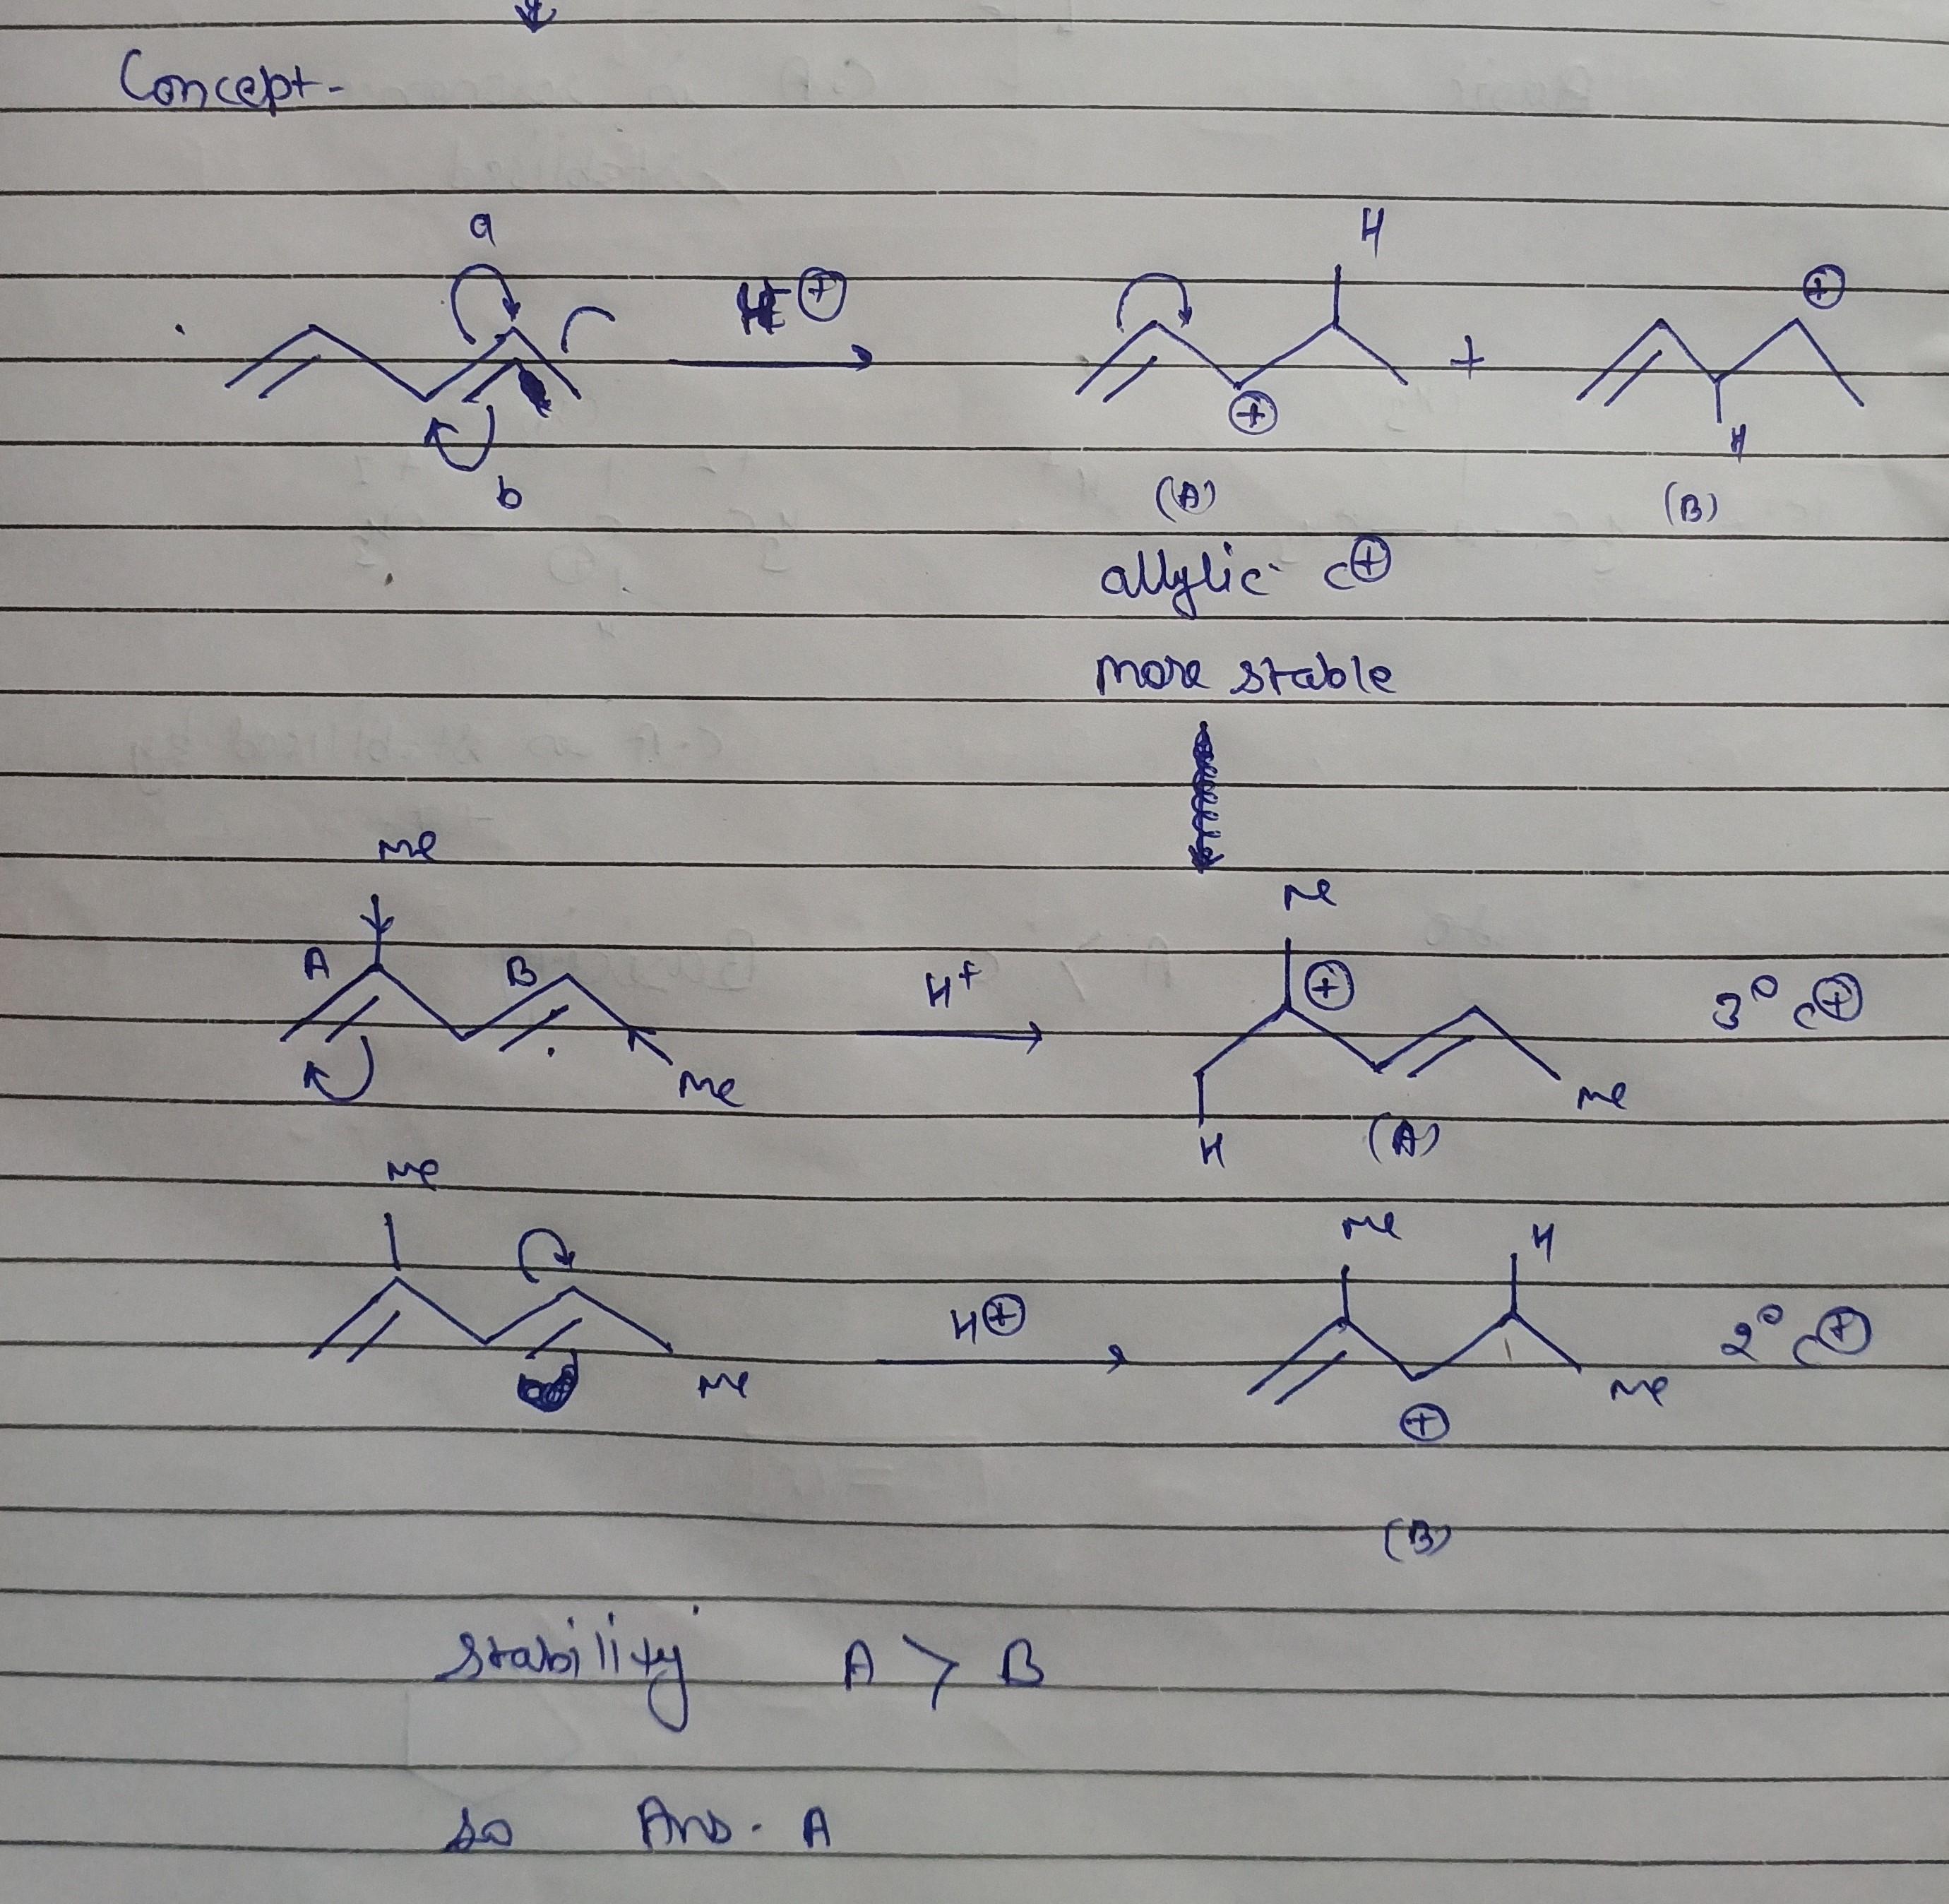 Concept-
a
H⊕
H
⊕
+
⊕
H
b
(A)
(B)
allylic C⊕
more stable
Me
Me
A
B
H+
⊕
3° C⊕
Me
Me
H
(A)
Me
Me
H
H⊕
2° C⊕
Me
Me
⊕
(B)
stability A > B
so Ans. A